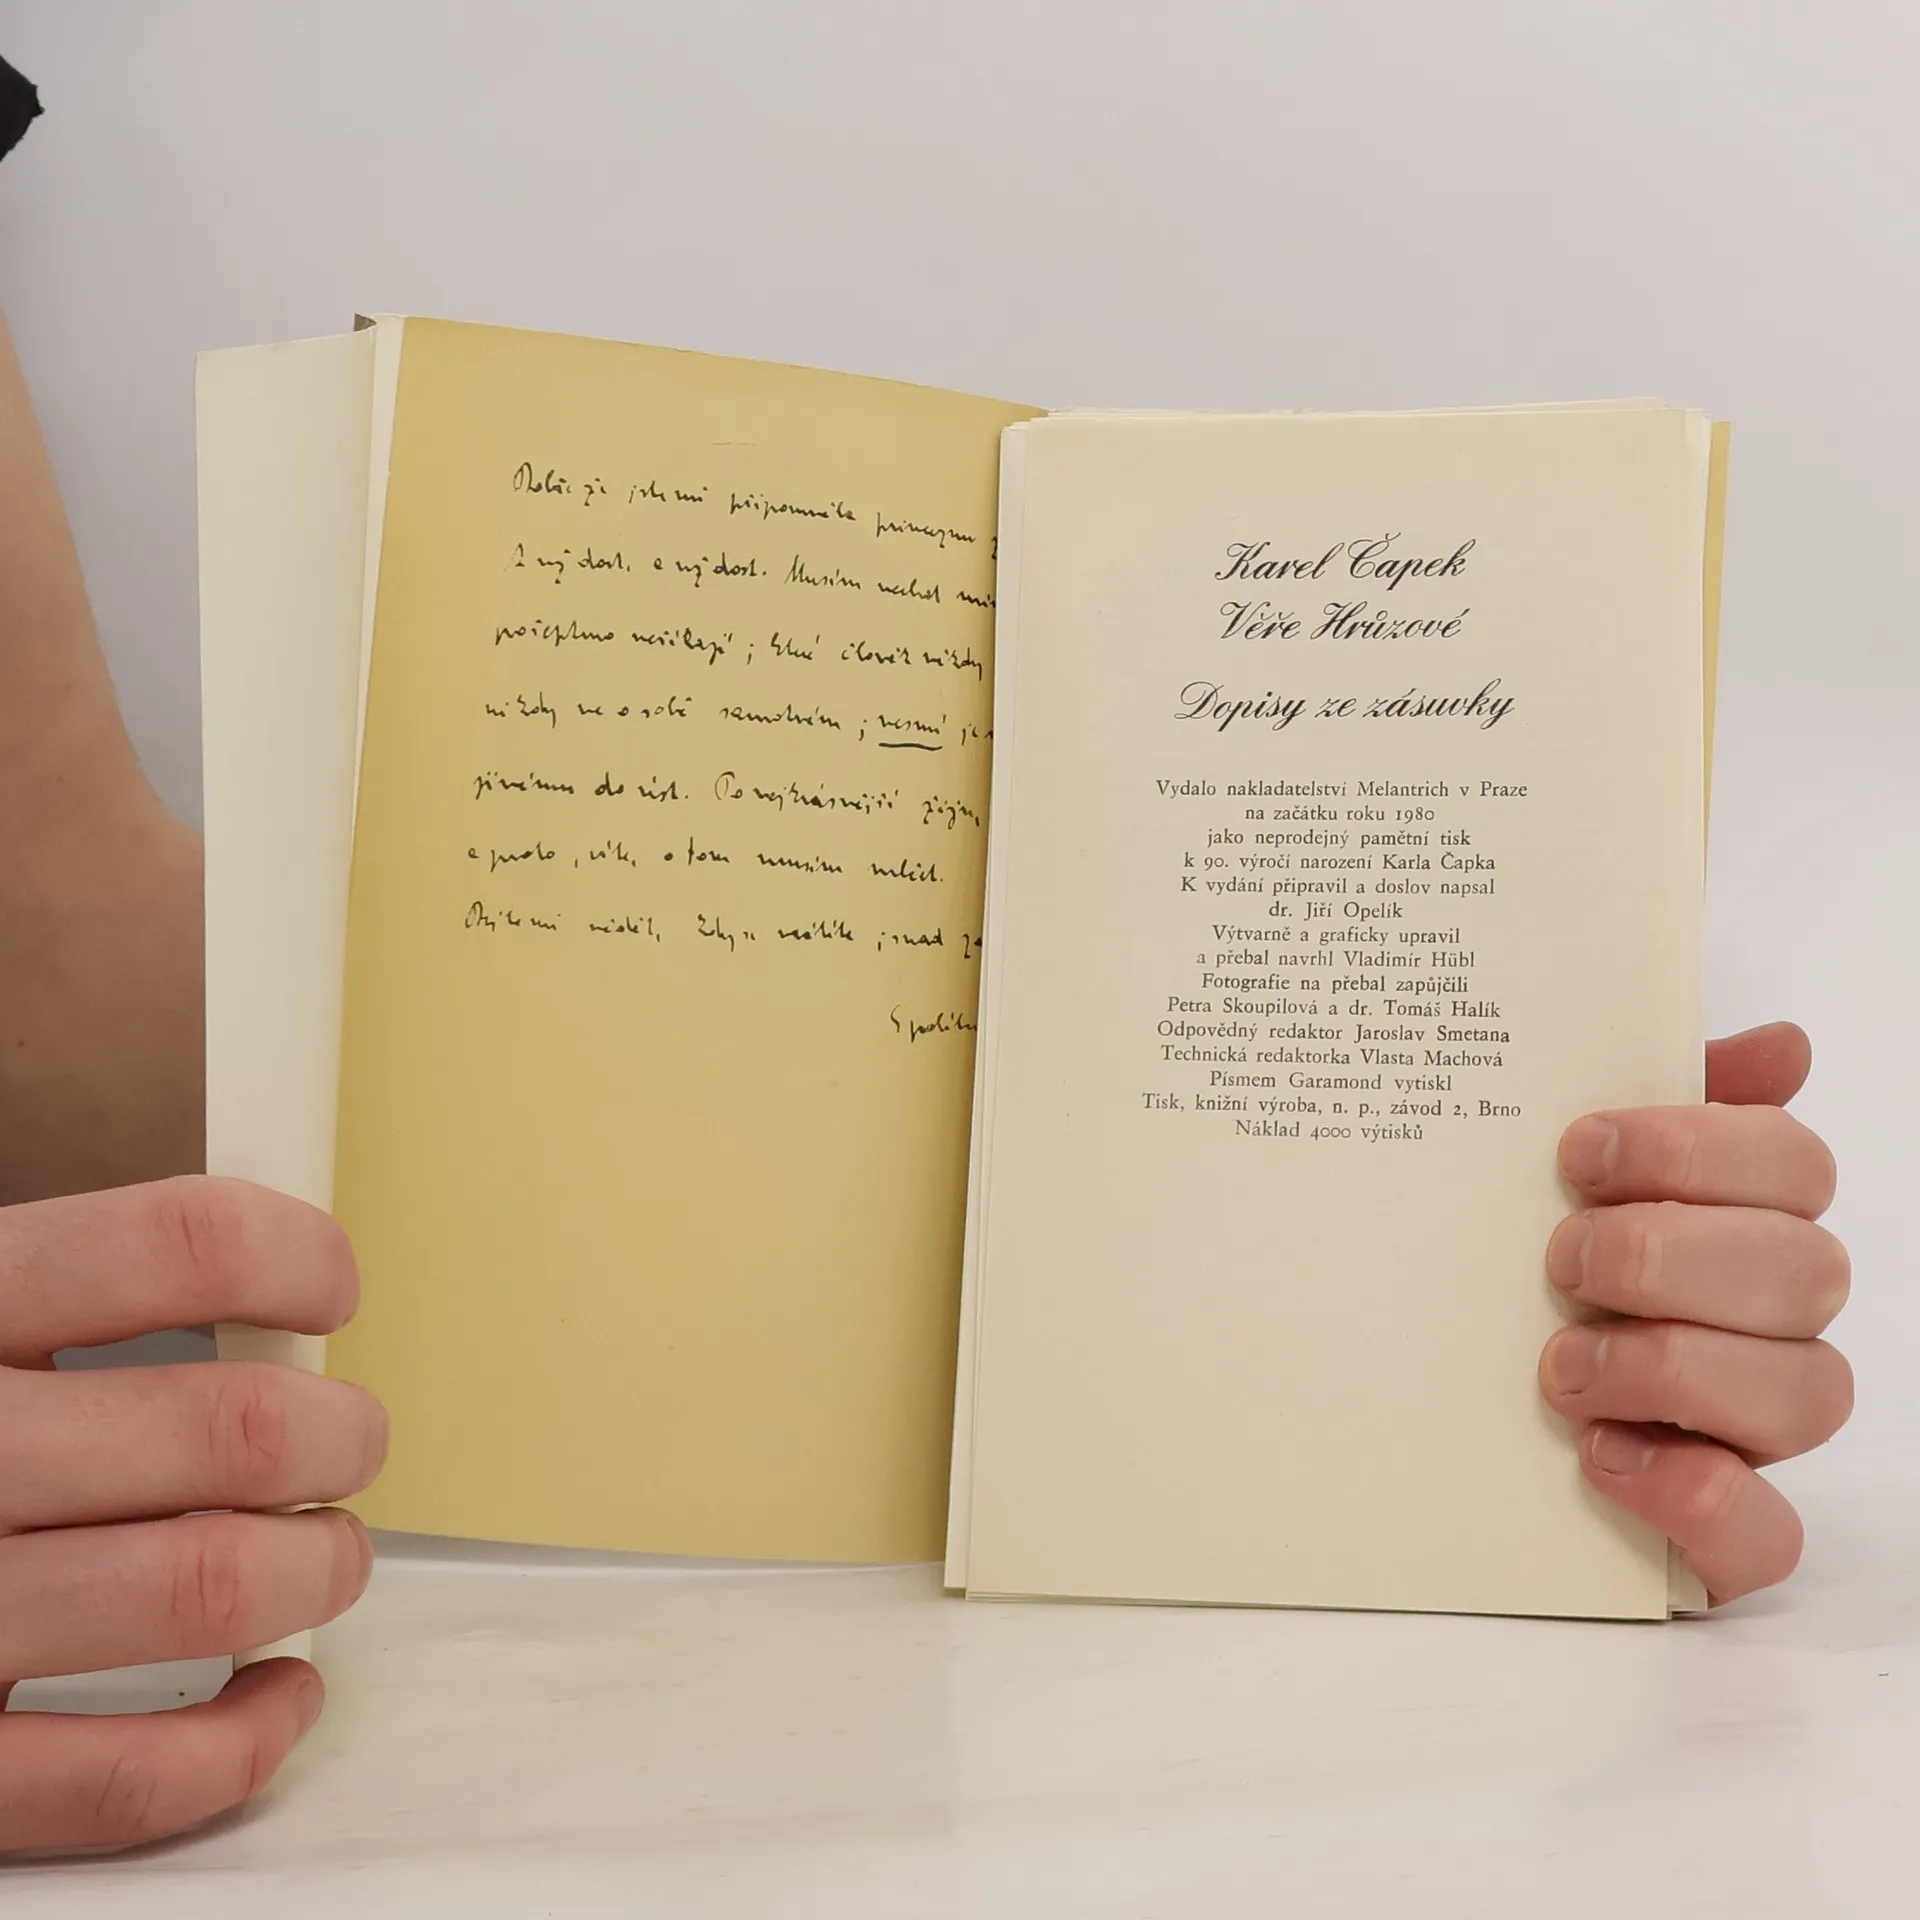 jste mi připomněla princeznu
A už dost, a už dost. Musím nechat
pošeptmo neříkají; které člověk nikdy
nikdy ne o sobě samotném; nesmí je
jinému do úst. To nejkrásnější
a proto, víte, o tom musím mlčet.
Dejte mi vědět, kdy se vrátíte; snad
Karel Čapek
Věře Hrůzové
Dopisy ze zásuvky
Vydalo nakladatelství Melantrich v Praze
na začátku roku 1980
jako neprodejný pamětní tisk
k 90. výročí narození Karla Čapka
K vydání připravil a doslov napsal
dr. Jiří Opelík
Výtvarně a graficky upravil
a přebal navrhl Vladimír Hübl
Fotografie na přebal zapůjčili
Petra Skoupilová a dr. Tomáš Halík
Odpovědný redaktor Jaroslav Smetana
Technická redaktorka Vlasta Machová
Písmem Garamond vytiskl
Tisk, knižní výroba, n. p., závod 2, Brno
Náklad 4000 výtisků